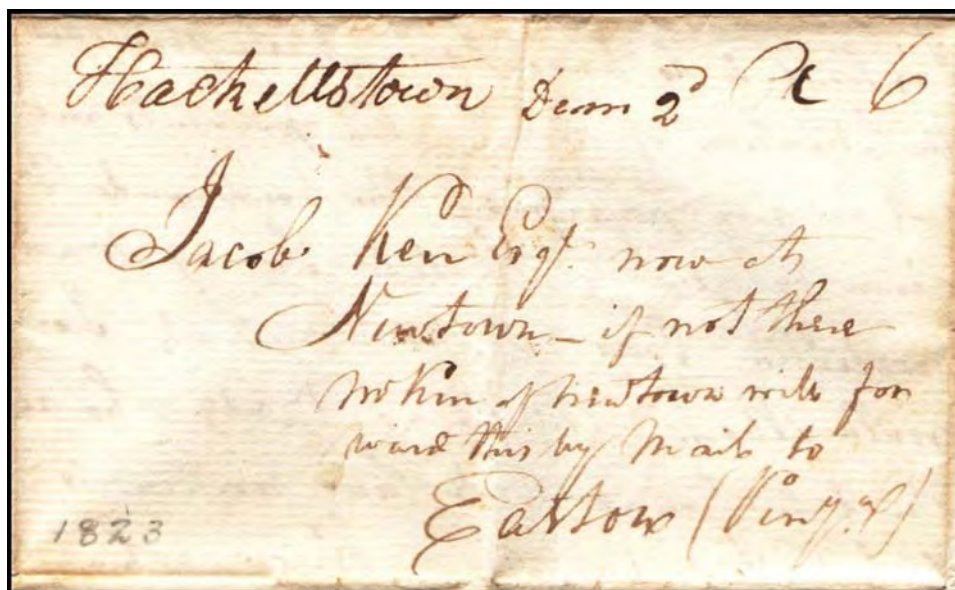 Hackettstown Decm 2d 6
Jacob Kerr Esqr. now at
Newtown - if not there
Mr Kerr of Newtown will for
ward this by Mail to
Easton
1823